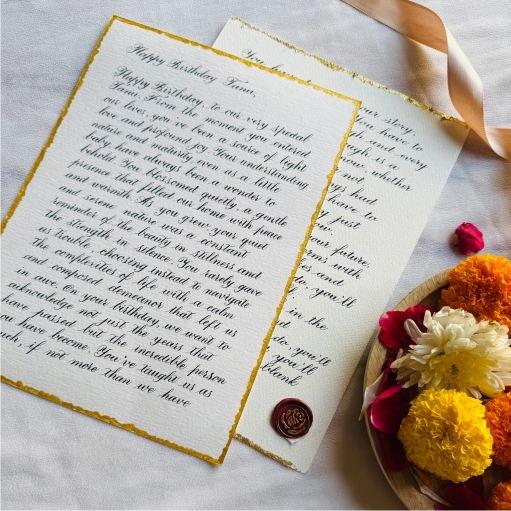 Happy Birthday Tanu,
Happy Birthday to our very special
Tanu. From the moment you entered
our lives, you've been a source of light
love and profound joy. Your understanding
nature and maturity even as a little
baby have always been a wonder to
behold. You blossomed quietly, a gentle
presence that filled our home with peace
and warmth. As you grew, your quiet
and serene nature was a constant
reminder of the beauty in stillness and
the strength in silence. You rarely gave
us trouble, choosing instead to navigate
the complexities of life with a calm
and composed demeanor that left us
in awe. On your birthday, we want to
acknowledge not just the years that
have passed but the incredible person
you have become. You've taught us as
much, if not more than we have
You have
your story.
you have to
and every
is a
whether
had
have to
just
your future,
with
and
to, you'll
in the
do, you'll
you'll
blank